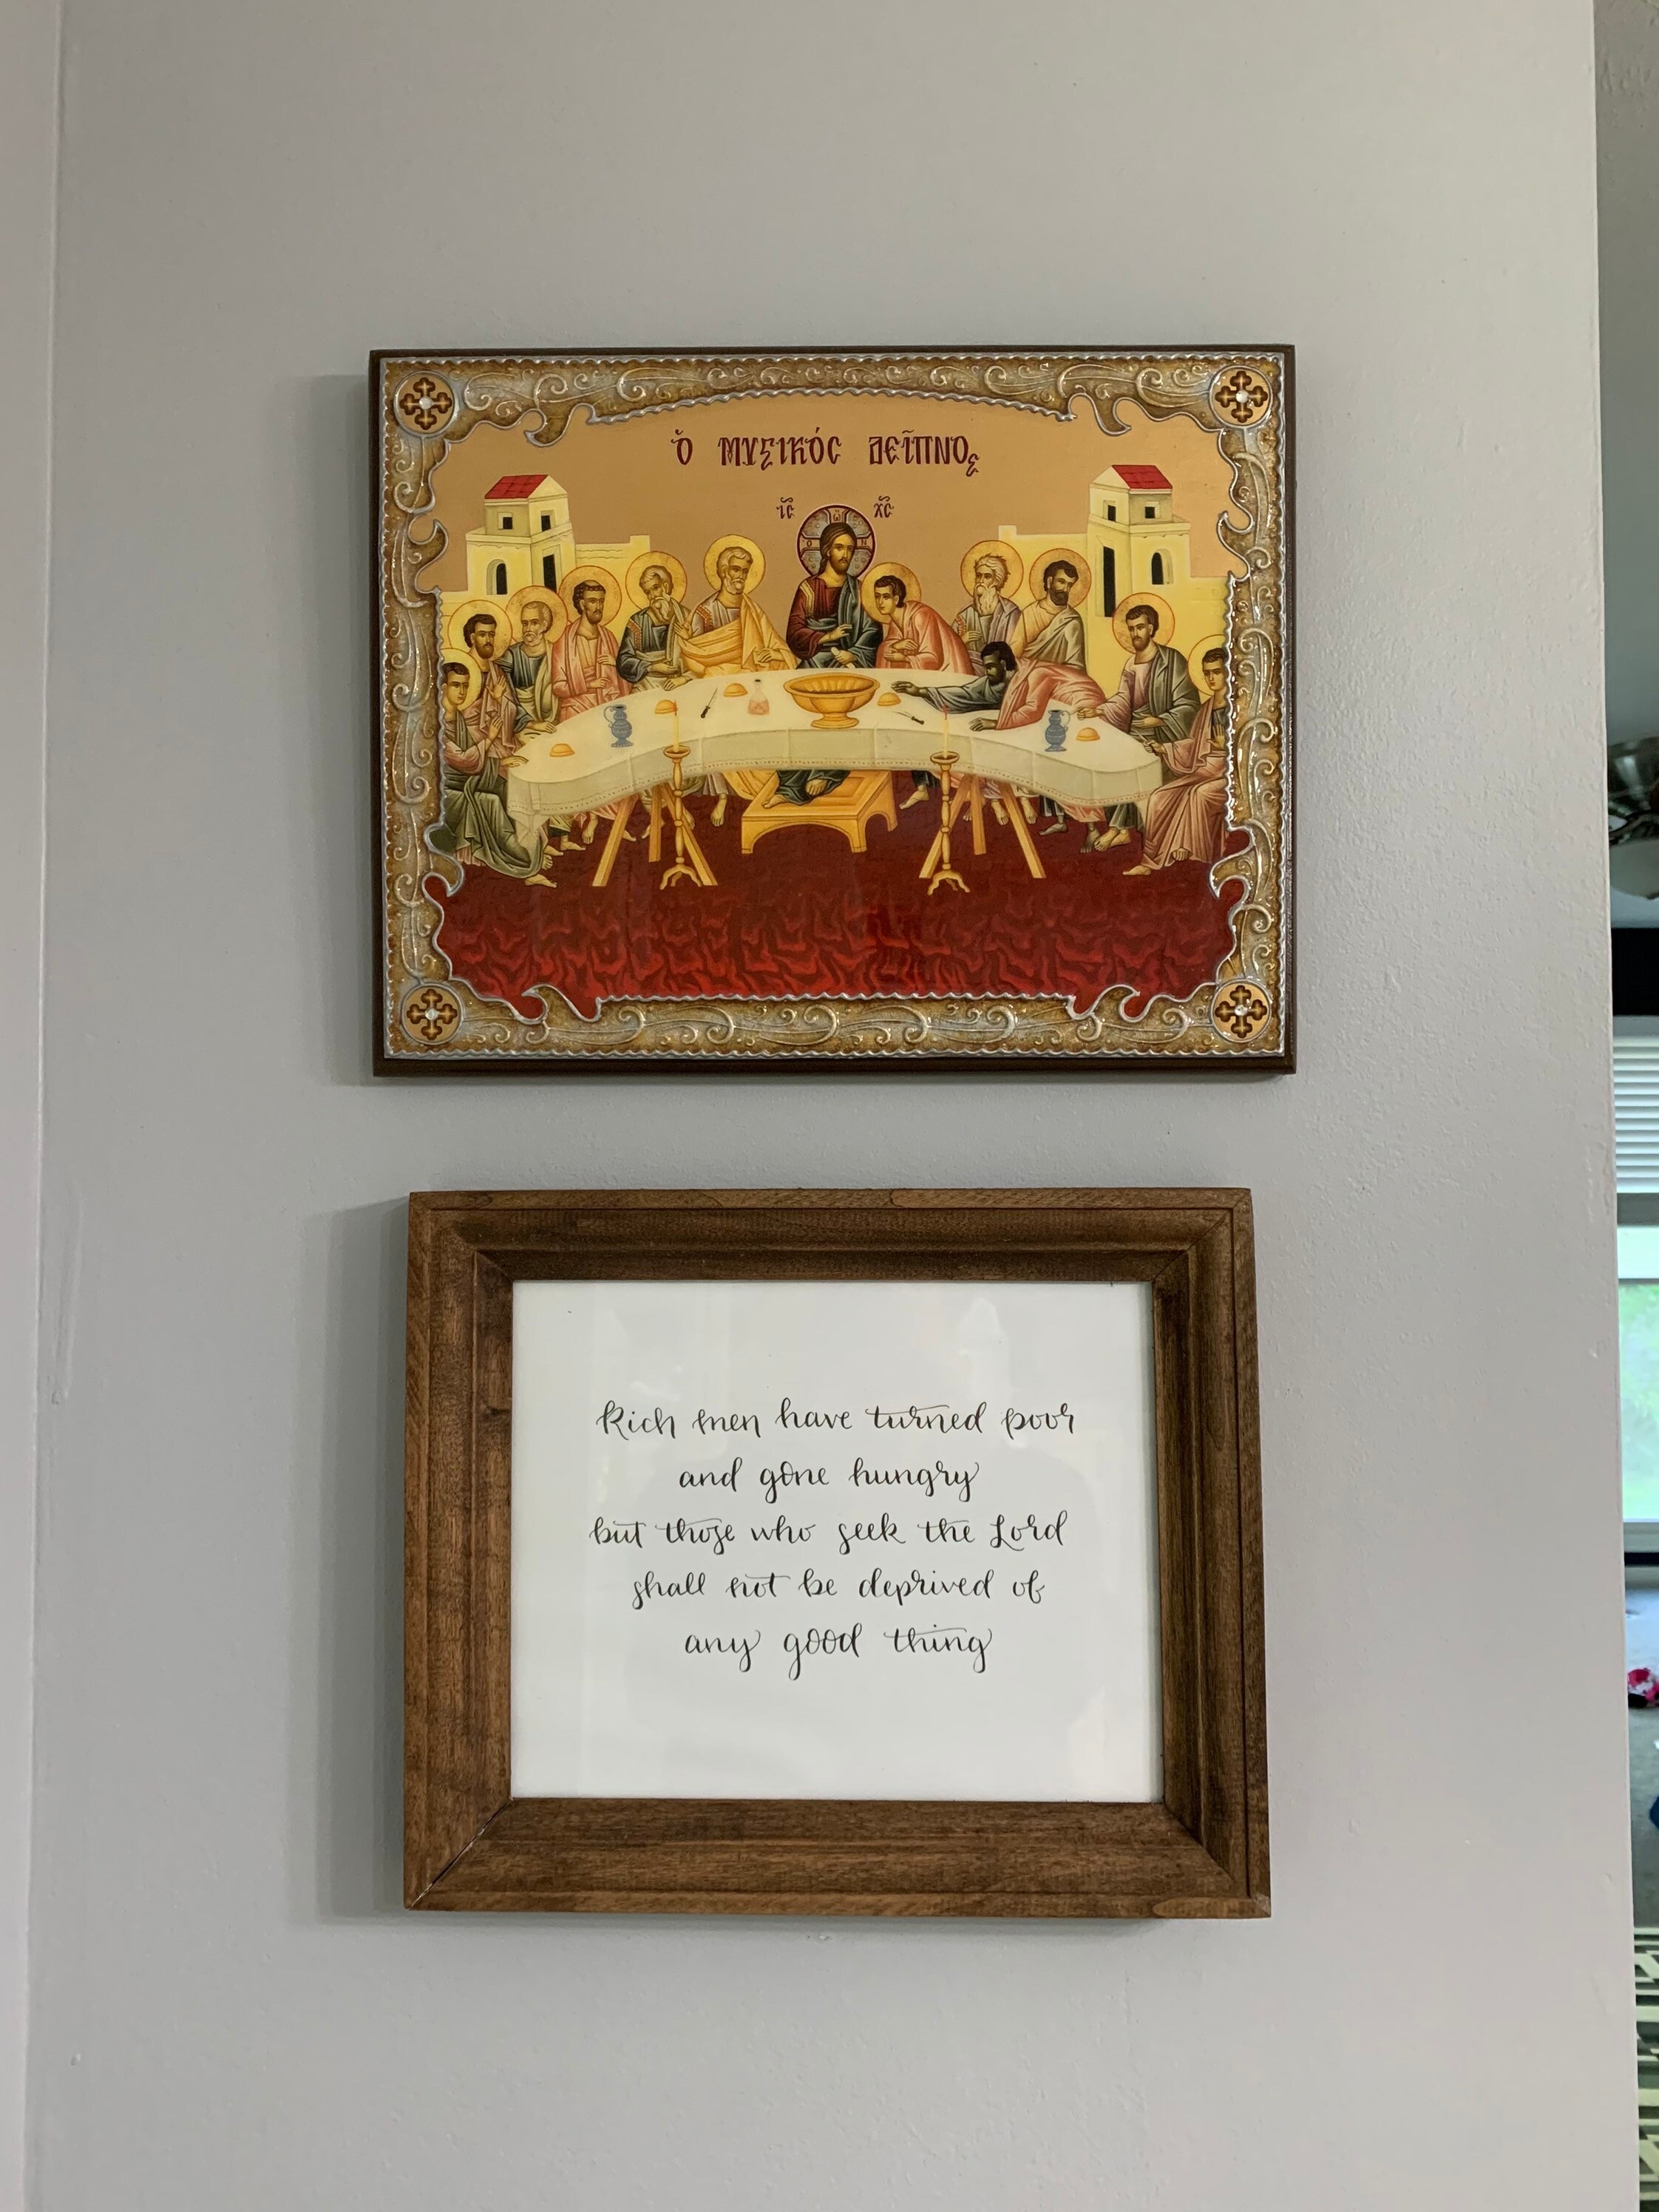 Ὁ ΜΥΣΙΚΌΣ ΔΕΙ͂ΠΝΟς
ΙΣ ΧΣ
Ὁ Ὤ Ν
Rich men have turned poor
and gone hungry
but those who seek the Lord
shall not be deprived of
any good thing